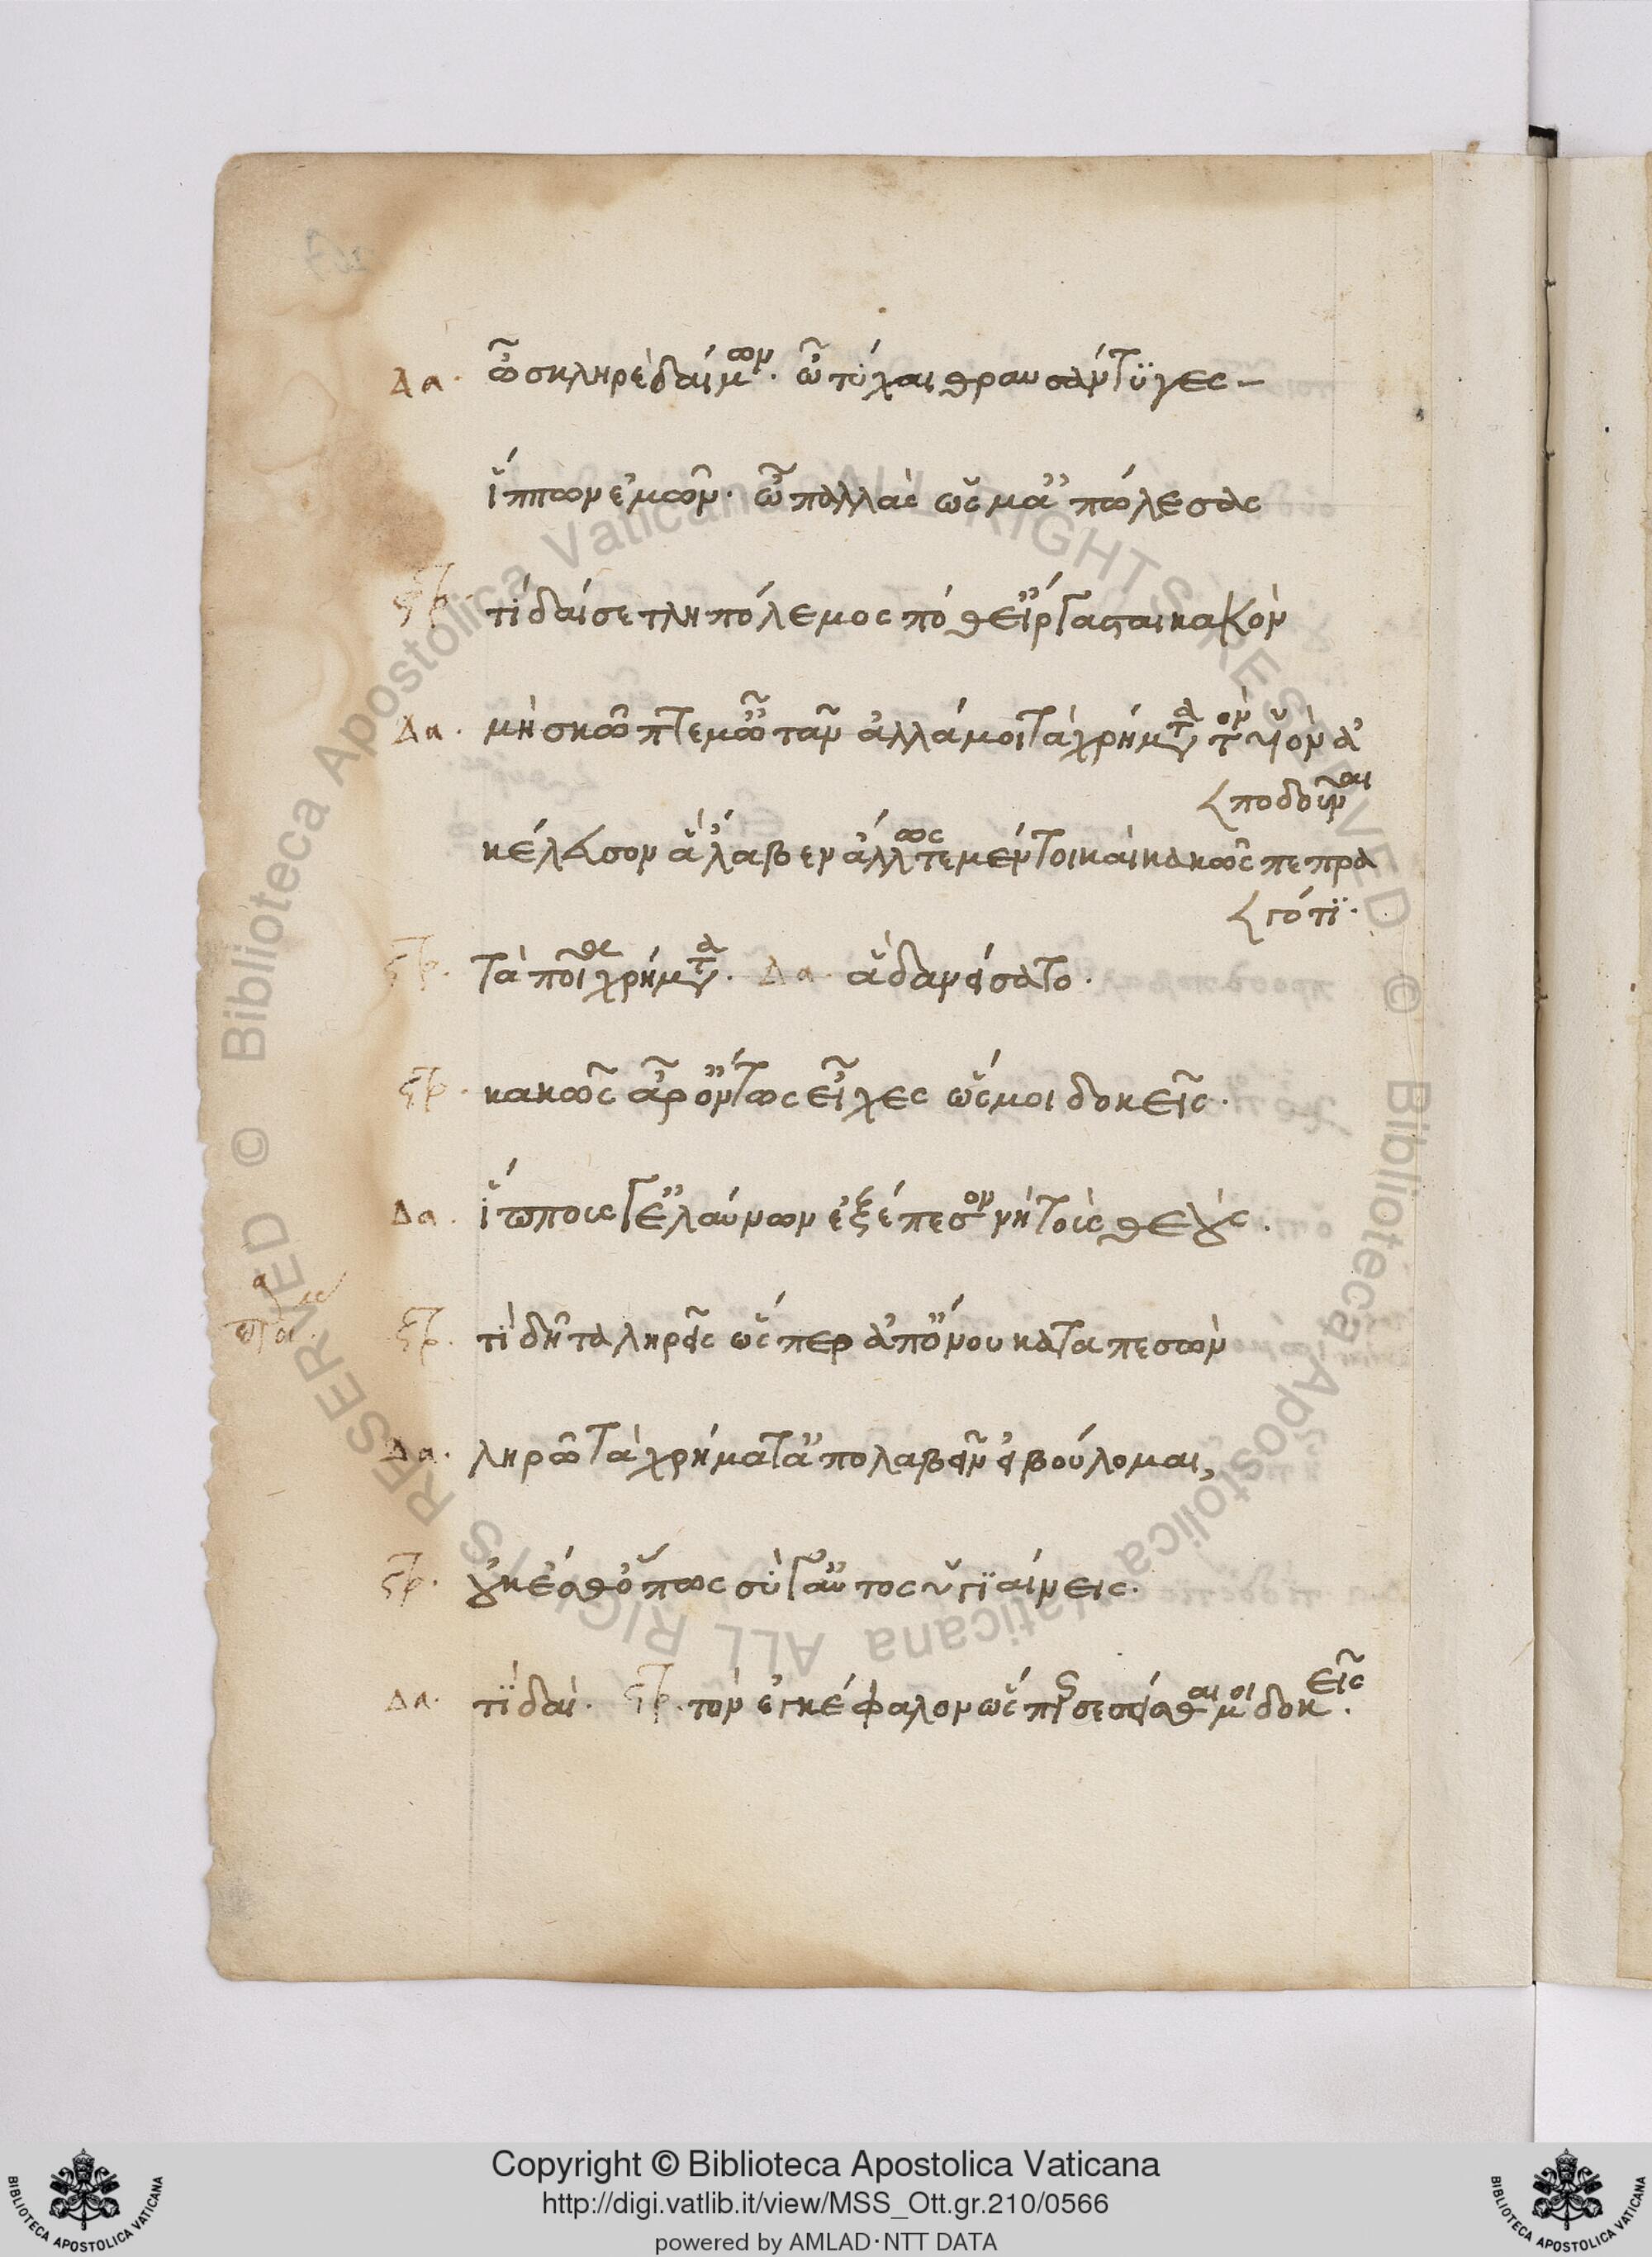 Δα. ὦ σκληρὲ δαίμων. ὦ τύχαι θραυσάντϋγες
ἵππων ἐμῶν. ὦ παλλὰς ὥς μ᾽ ἀπώλεσας
Στρ. τί δαί σε τληπόλεμος πότ᾽ εἴργασται κακὸν
Δα. μὴ σκῶπτέ μ᾽ ὦ τᾶν ἀλλά μοι τὰ χρήματα τὸν υἱὸν ἀ
ποδοῦναι
κέλευσον ἃ ἔλαβεν ἄλλως τε μέντοι καὶ κακῶς πεπρα
γότϊ.
Στρ. τὰ ποῖα χρήματα. Δα. ἃ δανείσατο.
Στρ. κακῶς ἄρ᾽ ὄντως εἶχες ὥς μοι δοκεῖς.
Δα. ἵππους γ᾽ ἐλαύνων ἐξέπεσον νὴ τοὺς θεούς.
Στρ. τί δῆτα ληρεῖς ὥσπερ ἀπ᾽ ὄνου καταπεσὼν
Δα. ληρῶ τὰ χρήματα ἀπολαβεῖν εἰ βούλομαι,
Στρ. οὐκ ἔσθ᾽ ὅπως σύ γ᾽ αὐτὸς ὑγϊαίνεις.
Δα. τϊ δαὶ. Στρ. τὸν ἐγκέφαλον ὥσπερ σεσεῖσθαι μοι δοκεῖς.
Copyright © Biblioteca Apostolica Vaticana
http://digi.vatlib.it/view/MSS_Ott.gr.210/0566
powered by AMLAD·NTT DATA